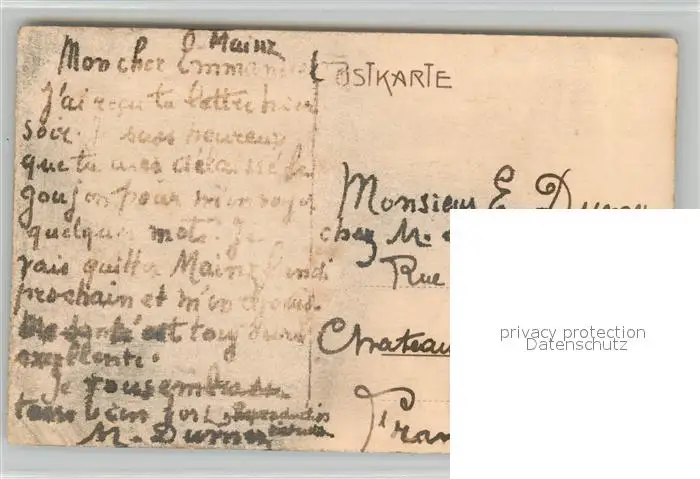 Mainz
Mon cher Emmanuel
J'ai reçu ta lettre hier
soir. Je suis heureux
que tu aies délaissé le
goujon pour m'envoyer
quelques mots. Je
vais quitter Mainz lundi
prochain et m'en
Ma santé est toujours
excellente.
Je vous embrasse
tous bien fort
M.
POSTKARTE
Monsieur E.
chez M.
Rue
Chateau
Fran
privacy protection
Datenschutz